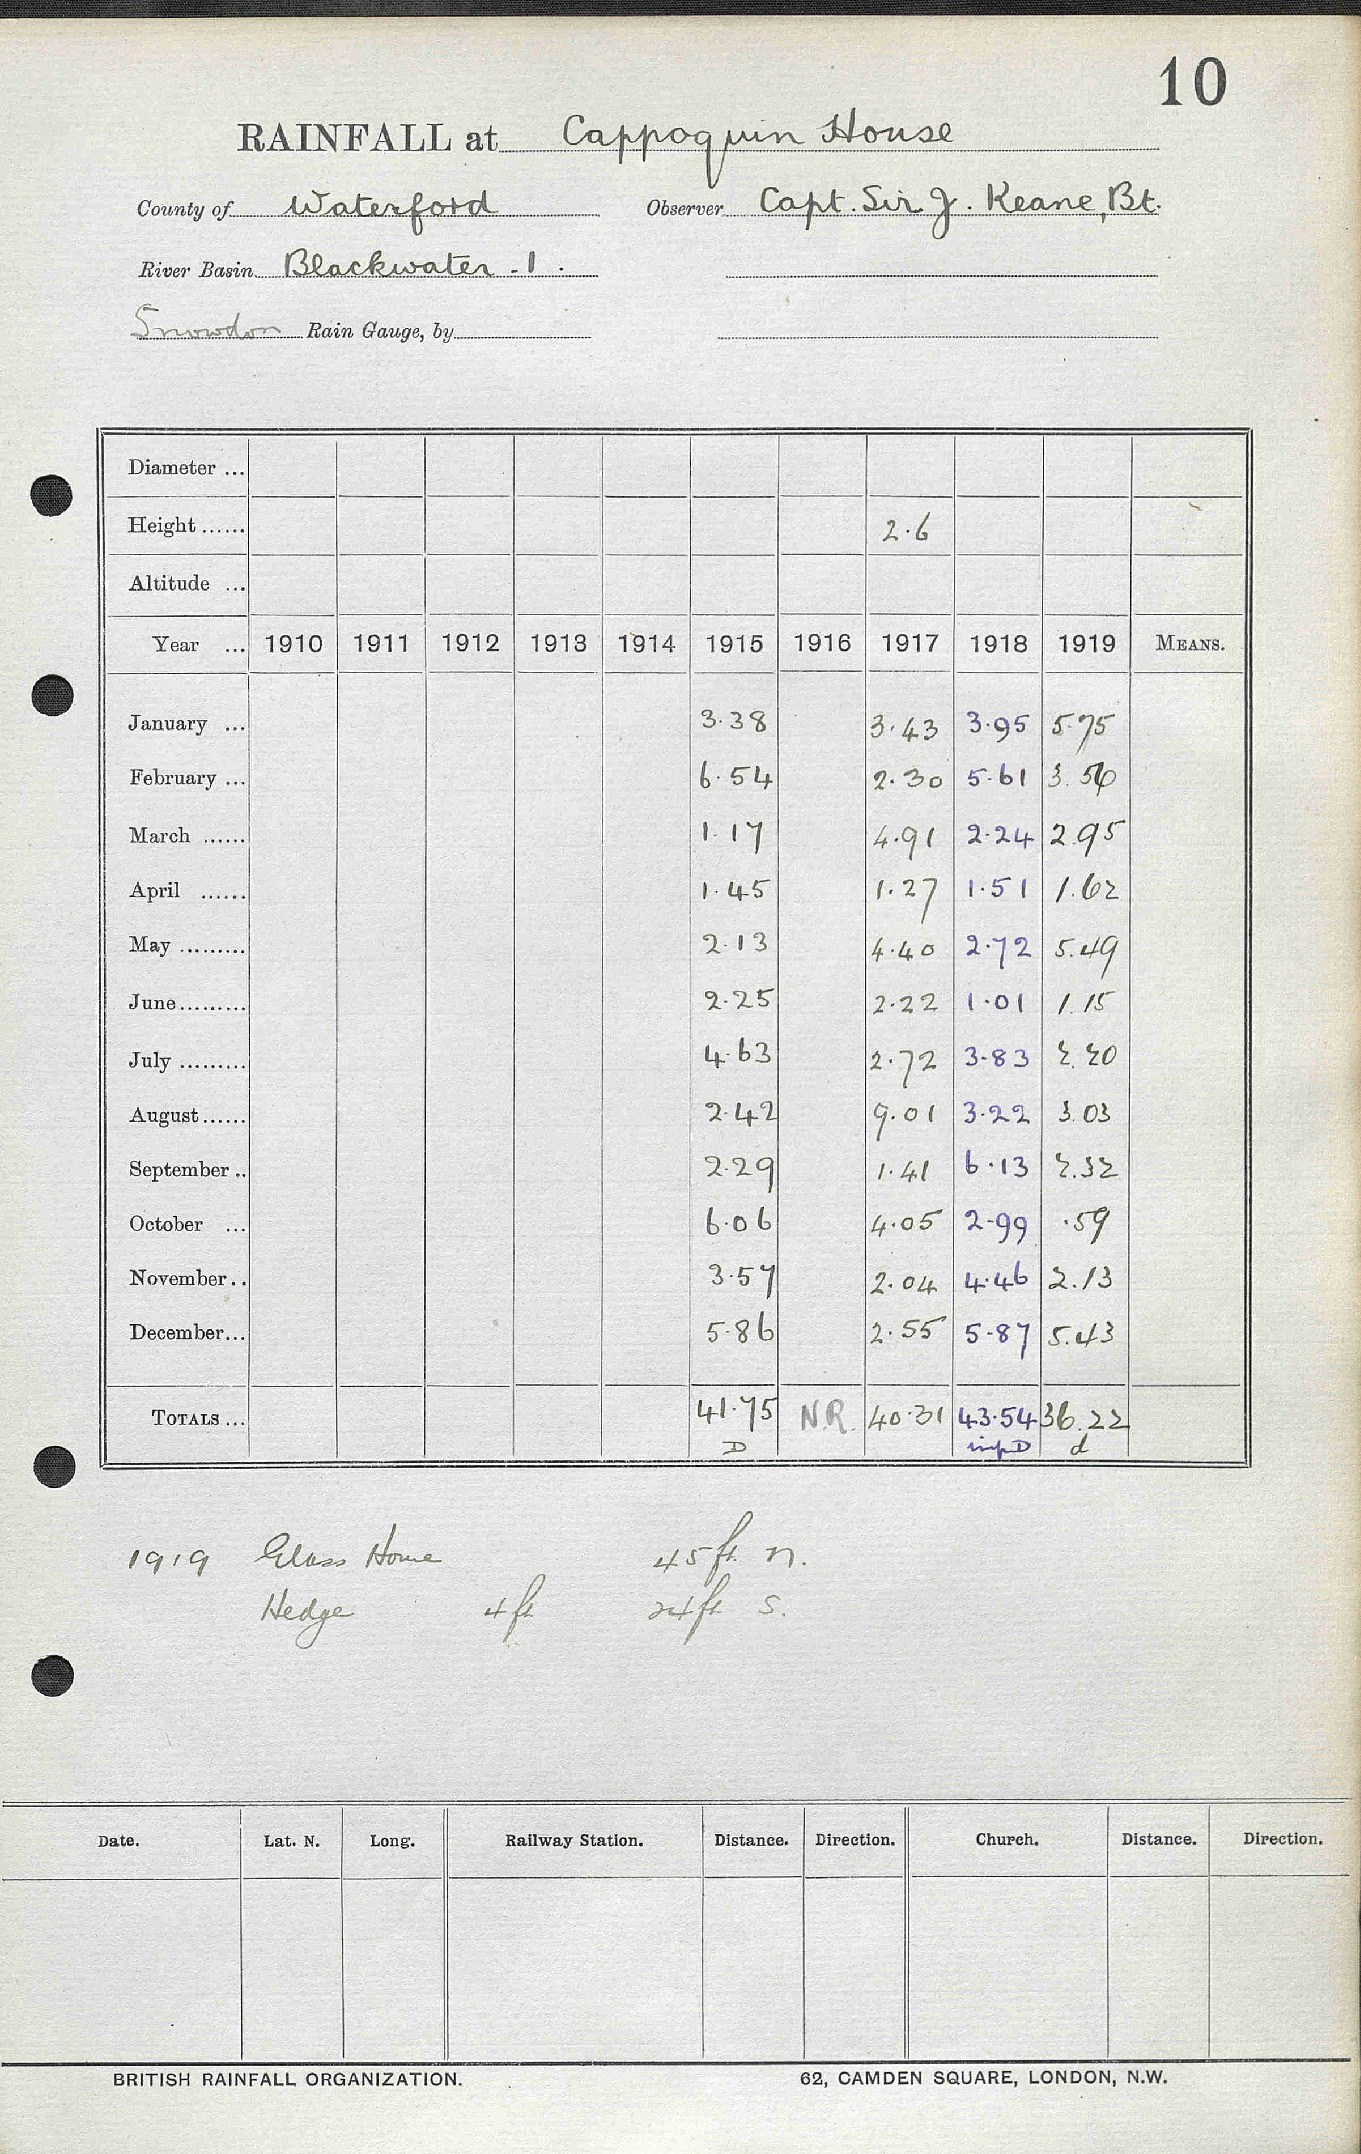 10
RAINFALL at Cappoquin House
County of Waterford Observer Capt. Sir J. Keane, Bt.
River Basin Blackwater - 1 .
Snowdon Rain Gauge, by
Diameter ...
Height ...... 2.6
Altitude ...
Year ... 1910 1911 1912 1913 1914 1915 1916 1917 1918 1919 MEANS.
January ... 3.38 3.43 3.95 5.75
February ... 6.54 2.30 5.61 3.56
March ...... 1.17 4.91 2.24 2.95
April ...... 1.45 1.27 1.51 1.62
May ......... 2.13 4.40 2.72 5.49
June......... 2.25 2.22 1.01 1.15
July ......... 4.63 2.72 3.83 2.20
August...... 2.42 9.01 3.22 3.03
September .. 2.29 1.41 6.13 2.32
October ... 6.06 4.05 2.99 .59
November.. 3.57 2.04 4.46 2.13
December... 5.86 2.55 5.87 5.43
TOTALS ... 41.75 N.R. 40.31 43.54 36.22
D impD d
1919 Glass House 45 ft n.
Hedge 4 ft 24 ft S.
Date. Lat. N. Long. Railway Station. Distance. Direction. Church. Distance. Direction.
BRITISH RAINFALL ORGANIZATION. 62, CAMDEN SQUARE, LONDON, N.W.